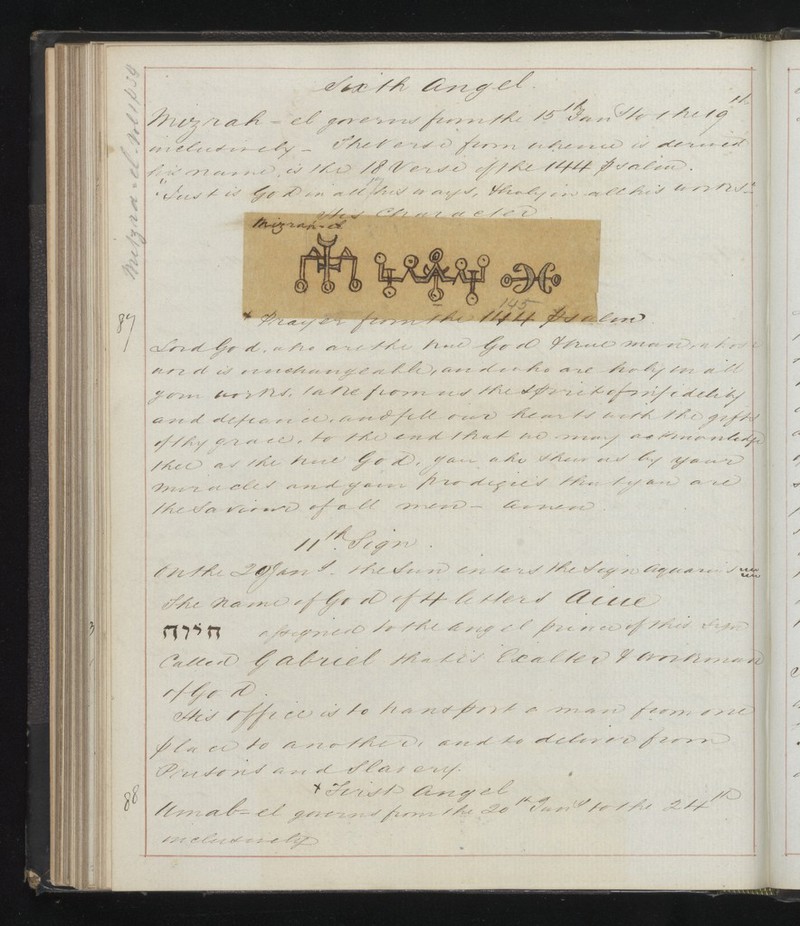 Metzra-el. Vol 1 p 59
Sixth Angel.
Mizrah-el governs from the 15th Jany to the 19th
inclusively - The verse from whence is derived
his name, is the 18 Verse of the 144 Psalm.
"Just is God in all his ways, & holy in all his works"
His Character
Mizrah-el
145
+ Prayer from the 144 Psalm
87
Lord God, who are the true God & true man, whose
word is unchangeable, and who are holy in all
your works, take from us the spirit of infidelity
and defiance, and fill our hearts with the gifts
of thy grace, to the end that we may acknowledge
thee as the true God, you who shew us by your
miracles and your prodigies that you are
the Saviour of all men - Amen.
11th Sign.
On the 20 Jany. the Sun enters the Sign Aquarius ♒
The Name of God of 4 letters
היוה assigned to the angel prince of this Sign
3
Called Gabriel that is Exalted & workman
of God.
His office is to transport a man from one
place to another, and to deliver from
Prisons and Slavery.
+ First Angel
88
Umab-el governs from the 20th Jany to the 24th
inclusively